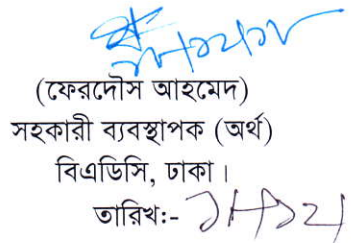 (ফেরদৌস আহমেদ)
সহকারী ব্যবস্থাপক (অর্থ)
বিএডিসি, ঢাকা।
তারিখঃ-